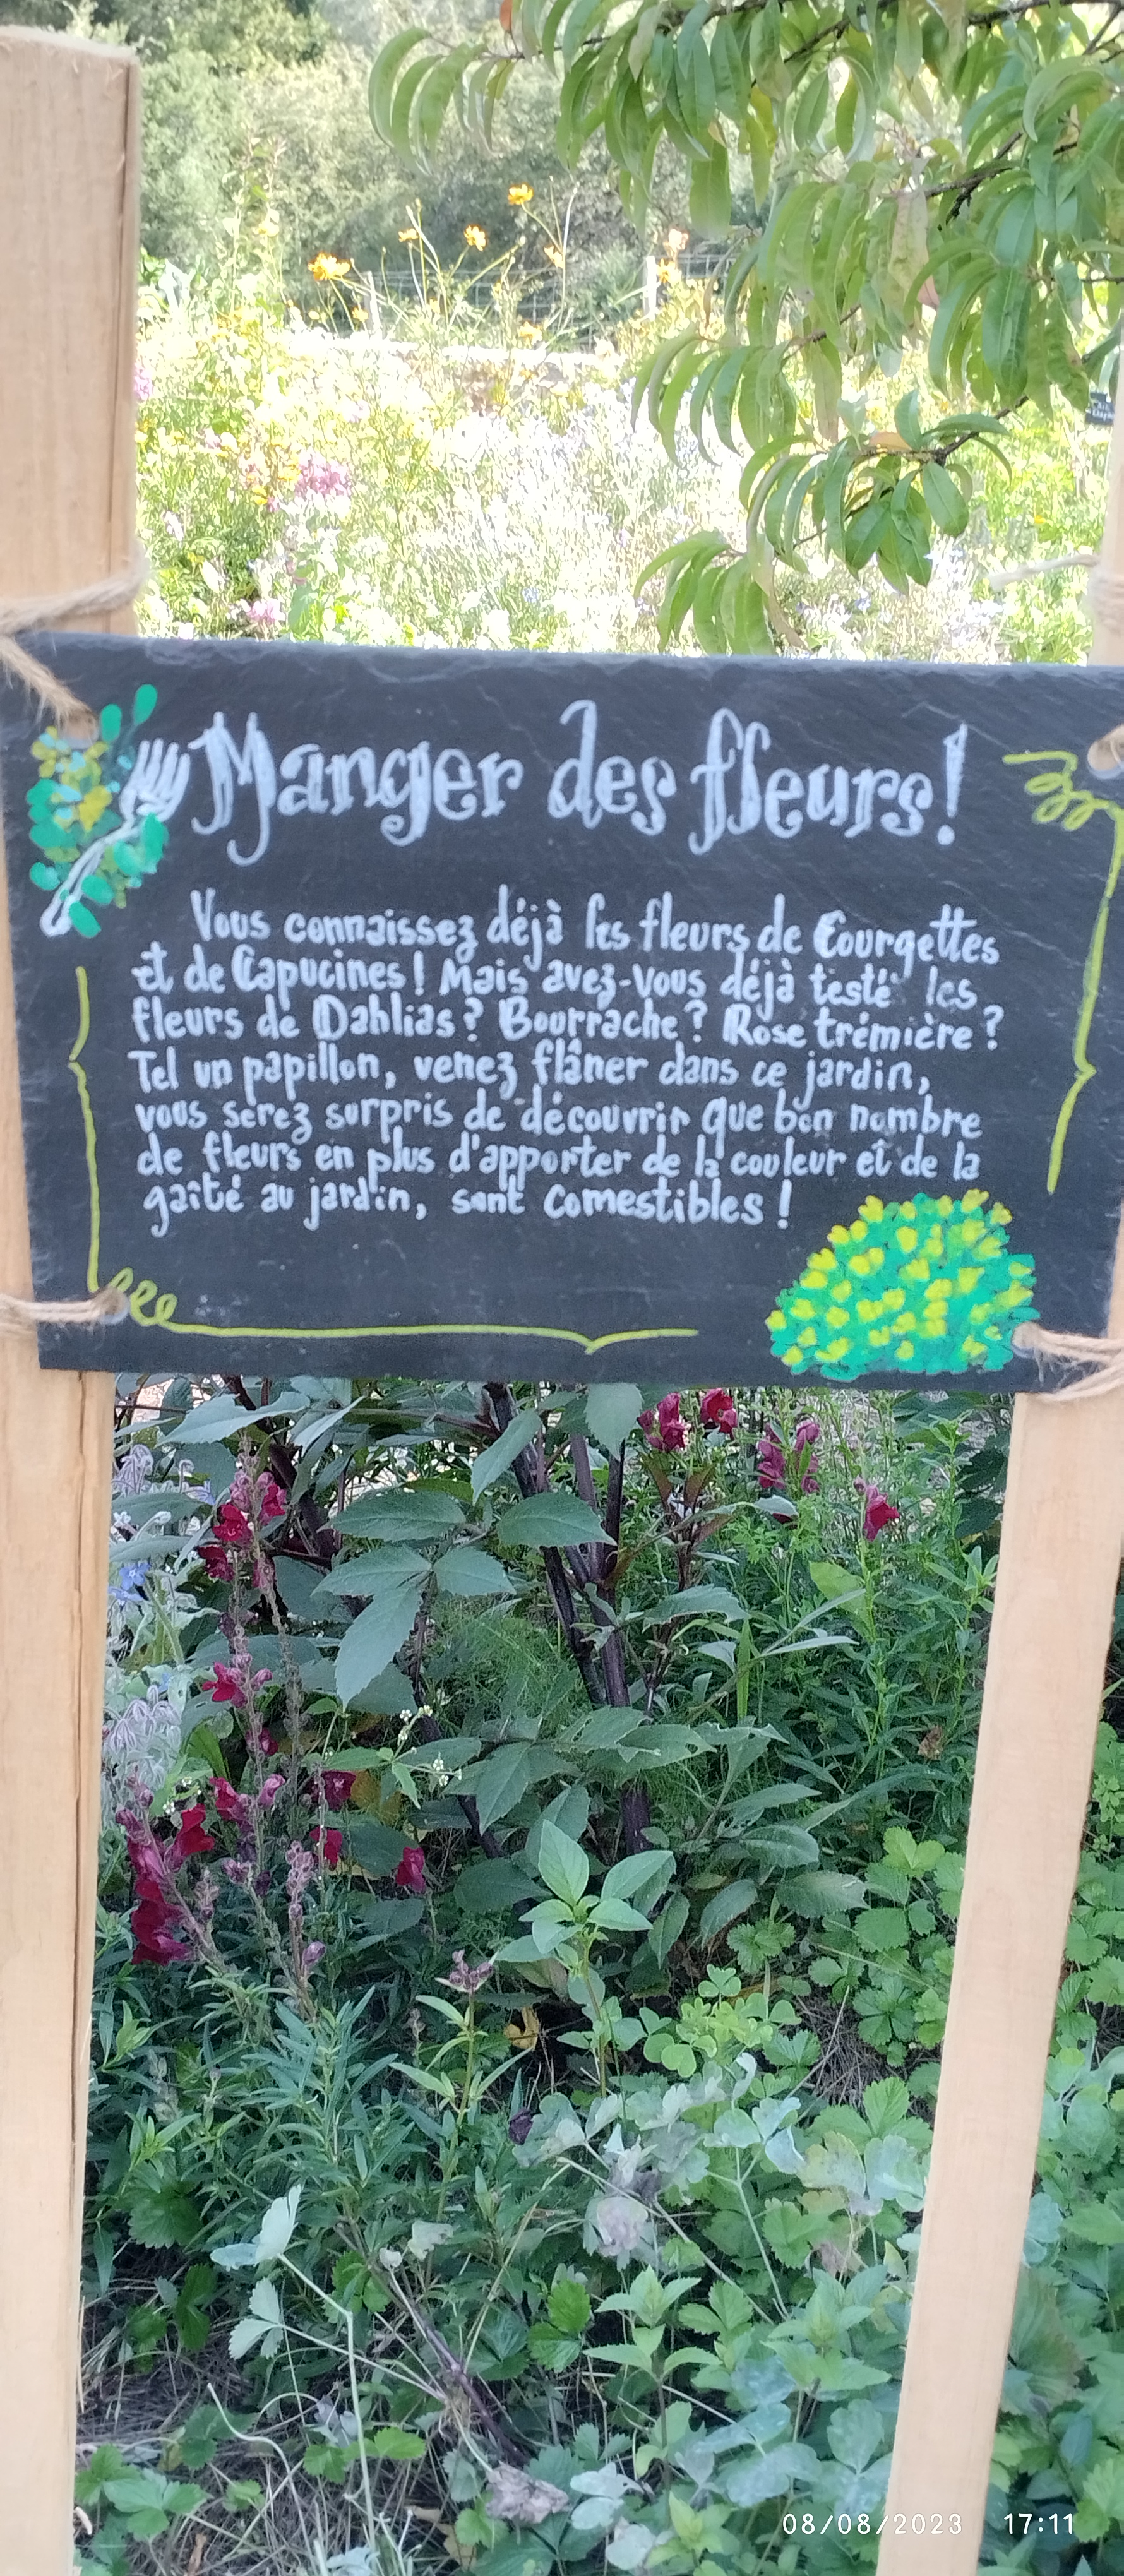 Manger des fleurs!
Vous connaissez déjà les fleurs de Courgettes
et de Capucines! Mais avez-vous déjà testé les
fleurs de Dahlias? Bourrache? Rose trémière?
Tel un papillon, venez flâner dans ce jardin,
vous serez surpris de découvrir que bon nombre
de fleurs en plus d'apporter de la couleur et de la
gaîté au jardin, sont comestibles!
08/08/2023 17:11